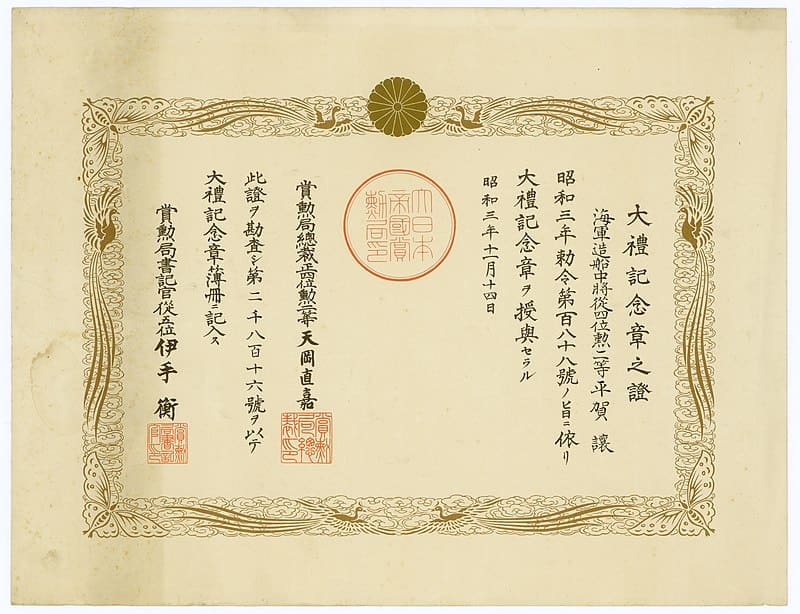 大禮記念章之證
海軍造船中將從四位勲二等平賀 讓
昭和三年勅令第百八十八號ノ旨ニ依リ
大禮記念章ヲ授與セラル
昭和三年十一月十四日
大日本
帝國賞
勲局印
賞勲局總裁正四位勲二等天岡直嘉
賞勲
局總
裁印
此證ヲ勘査シ第二千八百十六號ヲ以テ
大禮記念章簿冊ニ記入ス
賞勲局書記官從五位伊手 衡